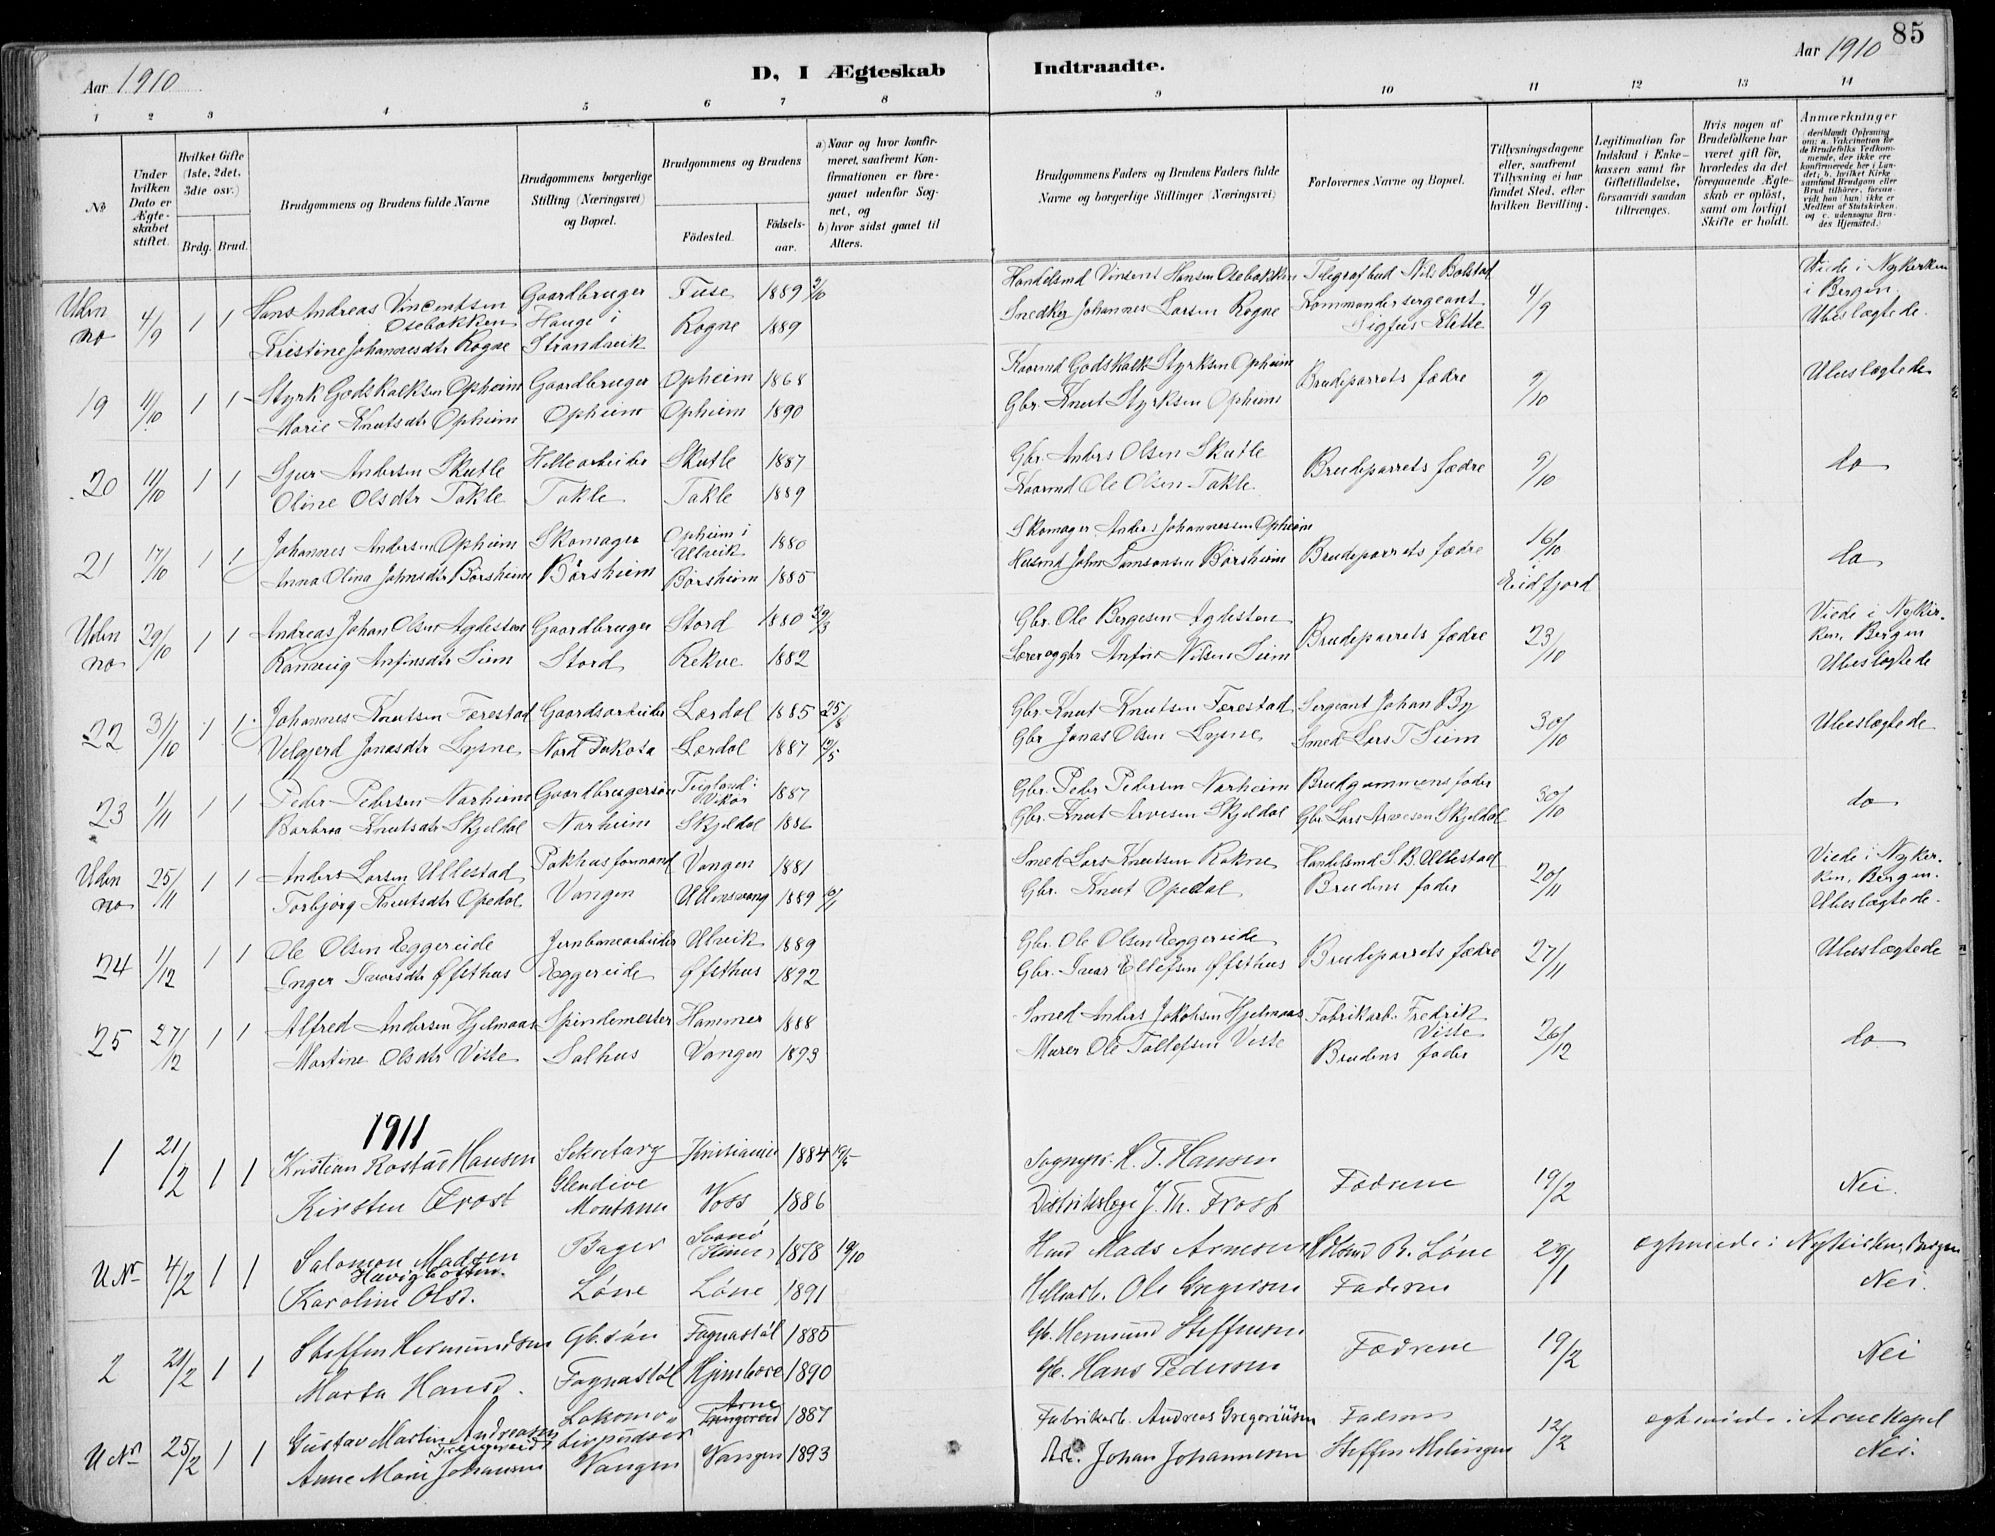 Aar 1910
D, I Ægteskab Indtraadte.
Aar 1910
85
1 2 3 4 5 6 7 8 9 10 11 12 13 14
No
Under hvilken Dato er Ægteskabet stiftet.
Hvilket Gifte (1ste, 2det, 3die osv.)
Brdg. Brud.
Brudgommens og Brudens fulde Navne
Brudgommens borgerlige Stilling (Næringsvei) og Bopæl.
Brudgommens og Brudens
Fødested.
Fødselsaar.
a) Naar og hvor konfirmeret, saafremt Konfirmationen er foregaaet udenfor Sognet, og
b) hvor sidst gaaet til Alters.
Brudgommens Faders og Brudens Faders fulde Navne og borgerlige Stillinger (Næringsvei)
Forlovernes Navne og Bopæl.
Tillysningsdagene eller, saafremt Tillysning ei har fundet Sted, efter hvilken Bevilling.
Legitimation for Indskud i Enkekassen samt for Giftetilladelse, forsaavidt saadan tiltrænges.
Hvis nogen af Brudefolkene har været gift før, hvorledes da det foregaaende Ægteskab er opløst, samt om lovligt Skifte er holdt.
Anmærkninger (deriblandt Oplysning om: a. Vakcination for de Brudefolks Vedkommende, der ikke ere konfirmerede her i Landet; b. hvilket Kirkesamfund Brudgom eller Brud tilhører, forsaavidt han (hun) ikke er Medlem af Statskirken, og c. udensogns Brudes Hjemsted.)
Uden no 4/9 1 1 Hans Andreas Vincentsen Osebakken Gaardbruger Fuse 1889 2/10 Handelsmd Vinsent Hansen Osebakken Telegrafbud Nils Bolstad 4/9 Viede i Nykirken i Bergen
Kristine Johannesdtr Rogne Hauge i Strandvik Rogne 1889 Snedker Johannes Larsen Rogne Kommandersergeant Sigfus Klette Ubeslægtede
19 11/10 1 1 Styrk Godskalksen Opheim Gaardbruger Opheim 1868 Kaarmd Godskalk Styrksen Opheim Brudeparrets fædre 9/10 Ubeslægtede
Marie Knutsdtr Opheim Opheim Opheim 1890 Gbr. Knut Styrksen Opheim
20 11/10 1 1 Sjur Andersen Skutle Hellearbeider Skutle 1887 Gbr. Anders Olsen Skutle Brudeparrets fædre 9/10 do
Oline Olsdtr Takle Takle Takle 1889 Kaarmd Ole Olsen Takle
21 17/10 1 1 Johannes Andersen Opheim Skomager Opheim i Ulvik 1880 Skomager Anders Johannessen Opheim Brudeparrets fædre 16/10 i Eidfjord do
Anna Olina Johnsdtr Børsheim Børsheim Børsheim 1885 Husmd John Samsonsen Børsheim
Uden no 29/10 1 1 Andreas Johan Olsen Agdesten Gaardbruger Stord 1880 29/3 Gbr. Ole Bergesen Agdesten Brudeparrets fædre 23/10 Viede i Nykirken, Bergen
Ranveig Anfinsdtr Siem Stord Rekve 1882 Lærer og gbr Anfin Nilsen Siem Ubeslægtede
22 31/10 1 1 Johannes Knutsen Færestad Gaardsarbeider Lærdal 1885 25/8 Gbr. Knut Knutsen Færestad Sergeant Johan By 30/10 Ubeslægtede
Velgjerd Jonasdtr Lysne Nord Dakota Lærdal 1887 12/5 Gbr Jonas Olsen Lysne Smed Lars T Siem
23 1/11 1 1 Peder Pedersen Norheim Gaardbrugersøn Teigland i Vikør 1887 Gbr. Peder Pedersen Norheim Brudgommens fader 30/10 do
Barbroa Knutsdtr Skjeldal Norheim Skjeldal 1886 Gbr. Knut Arvesen Skjeldal Gbr Lars Arvesen Skjeldal
Uden no 25/11 1 1 Anders Larsen Ullestad Pakhusformand Vangen 1881 Smed Lars Knutsen Rokne Handelsmd S. B. Ullestad 20/11 Viede i Nykirken, Bergen.
Torbjørg Knutsdtr Opedal Vangen Ullensvang 1889 Gbr. Knut Opedal Brudens fader Ubeslægtede.
24 1/12 1 1 Ole Olsen Eggereide Jernbanearbeider Ulvik 1889 Gbr. Ole Olsen Eggereide Brudeparrets fædre 27/11 Ubeslægtede
Inger Ivarsdtr Øfsthus Eggereide Øfsthus 1892 Gbr. Ivar Ellefsen Øfsthus
25 27/12 1 1 Alfred Andersen Hjelmaas Spindemester Hammer 1888 Smed Anders Jakobsen Hjelmaas Fabrikarb. Fredrik Viste 26/12 do
Martine Olsdtr Viste Salhus Vangen 1893 Murer Ole Tollefsen Viste Brudens fader
1911
1 21/2 1 1 Kristian Rostad Hansen Sekretær Kristiania 1884 Sogngpr. H. T. Hansen Fædrene 19/2 Nei.
Kirsten Frost Glendive Montana Voss 1886 Distriktslæge J. Th. Frost
U No 4/2 1 1 Salomon Madsen Havighotten Bager Svanø (Kinn) 1878 19/10 Hmd Mads Arnesen R. Løne 29/1 ægteviede i Nykirken, Bergen
Karoline Olsd. Løne Løne 1891 Hellearb. Ole Gregersen Faderen Nei.
2 21/2 1 1 Steffen Hermundsen Gb. søn Fagnastøl 1885 Gb. Hermund Steffensen Fædrene 19/2 Nei
Marta Hansd. Fagnastøl 1890 Gb. Hans Pedersen
U No 25/2 1 1 Gustav Martin Andreassen Lokomotivpudser Arne 1887 Fabrikarb. Andreas Gregoriusen Faderen 12/2 ægteviede i Arne Kapel
Anne Marie Johansen Vangen Vangen 1893 Arb. Johan Johannesen Steffen Melingen Nei.